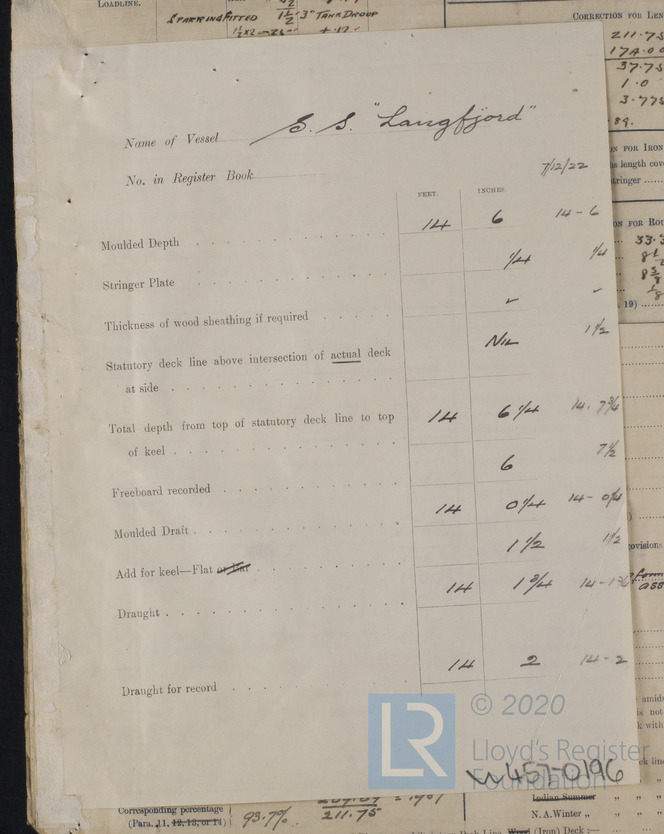 LOADLINE.
SPARRING FITTED 1½ 3" TANK DROOP
CORRECTION FOR LEN
211.75
174.00
37.75
1.0
3.775
Name of Vessel S.S. "Langfjord"
No. in Register Book 7/12/22
FEET. INCHES.
Moulded Depth 14 6 14-6
Stringer Plate ¼ ¼
Thickness of wood sheathing if required ✓ ✓
Statutory deck line above intersection of actual deck
at side Nil 1½
Total depth from top of statutory deck line to top
of keel 14 6¼ 14. 7¾
Freeboard recorded 6 7½
Moulded Draft 14 0¼ 14-0¼
Add for keel—Flat or Bar 1½ 1½
Draught 14 1¾ 14-1¾
Draught for record 14 2 14-2
© 2020
LR
Lloyd's Register
Foundation
W457-0196
Corresponding percentage
(Para. 11, 12, 13, or 14) 93.7% 211.75
Indian Summer
N. A. Winter „ „ „
(Iron) Deck